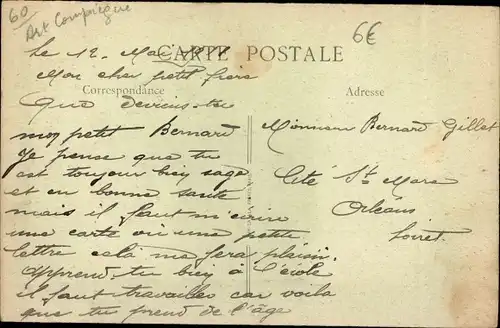 60
Art Compiegne
6€
CARTE POSTALE
Le 12. Mai
Mon cher petit frere
Correspondance
Adresse
Que deviens-tu
mon petit Bernard
Je pense que tu
est toujour bien sage
et en bonne sante
mais il faut m'écrire
une carte ou une petite
lettre celà me fera plaisir
apprend-tu bien à l'école
il faut travailler car voila
que tu prend de l'âge
Monsieur Bernard Gillet
Cité St Marc
Orléans
Loiret